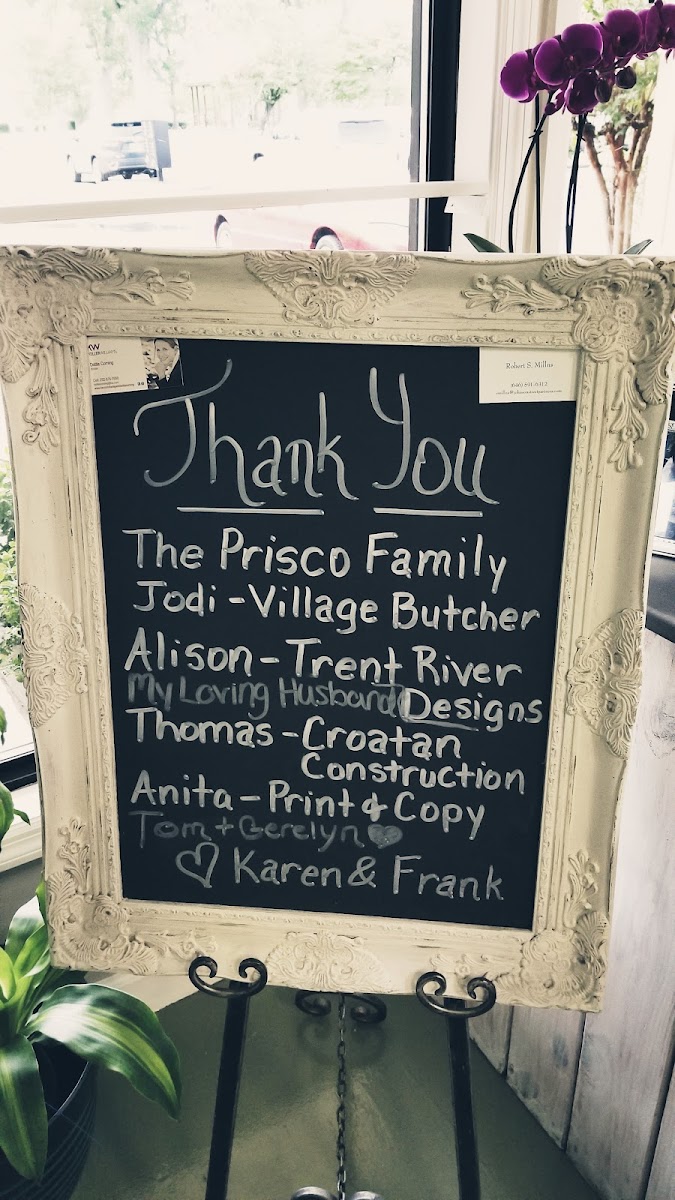 KW
Robert S. Millus
Thank You
The Prisco Family
Jodi - Village Butcher
Alison - Trent River
My Loving Husband Designs
Thomas - Croatan
Construction
Anita - Print & Copy
Tom + Gerelyn
Karen & Frank